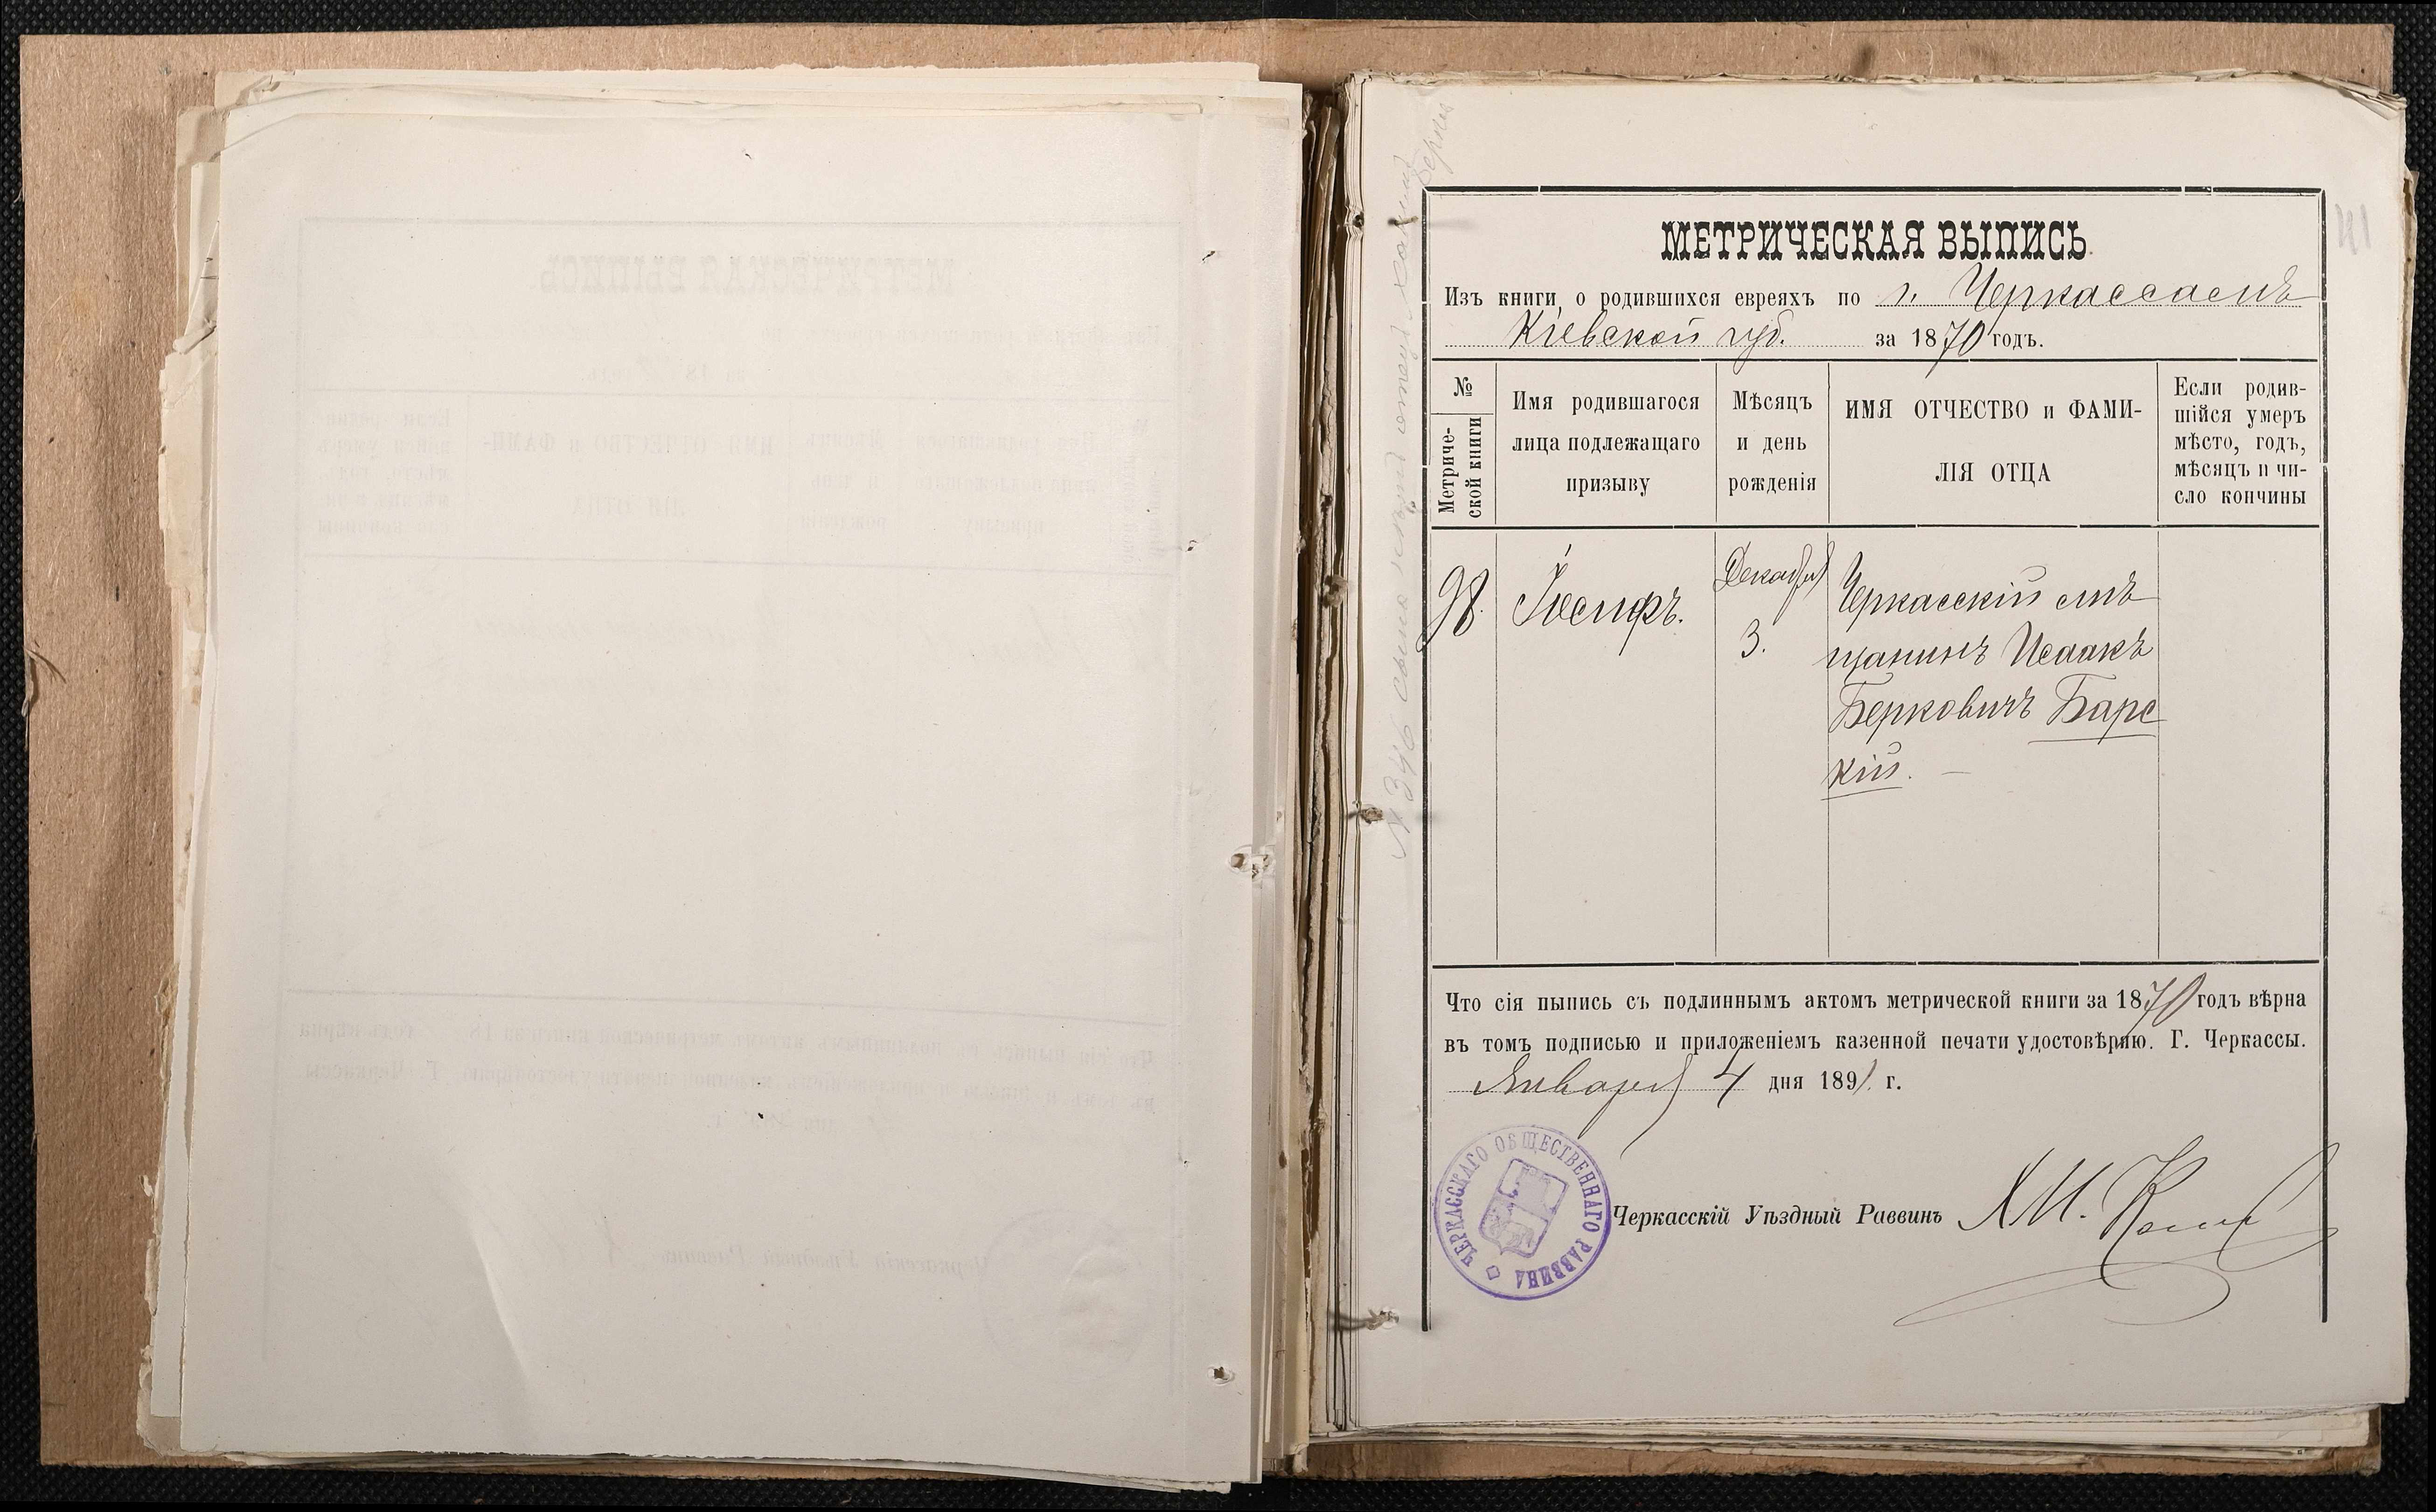 41
МЕТРИЧЕСКАЯ ВЫПИСЬ.
Изъ книги о родившихся евреяхъ по г. Черкассамъ
Кіевской губ. за 1870 годъ.
№
Метриче-
ской книги
Имя родившагося
лица подлежащаго
призыву
Мѣсяцъ
и день
рожденія
ИМЯ ОТЧЕСТВО и ФАМИ-
ЛІЯ ОТЦА
Если родив-
шійся умеръ
мѣсто, годъ,
мѣсяцъ и чи-
сло кончины
98.
Іосифъ.
Декабря
3.
Черкасскій мѣ
щанинъ Исаакъ
Берковичъ Барс
кій.
Что сія выпись съ подлиннымъ актомъ метрической книги за 1870 годъ вѣрна
въ томъ подписью и приложеніемъ казенной печати удостовѣряю. Г. Черкассы.
Января 4 дня 1891. г.
ЧЕРКАССКАГО ОБЩЕСТВЕННАГО РАВВИНА
Черкасскій Уѣздный Раввинъ Х М.
№ 346
Берко